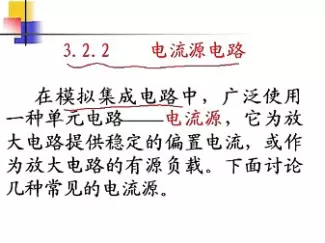 3.2.2 电流源电路
在模拟集成电路中，广泛使用
一种单元电路——电流源，它为放
大电路提供稳定的偏置电流，或作
为放大电路的有源负载。下面讨论
几种常见的电流源。